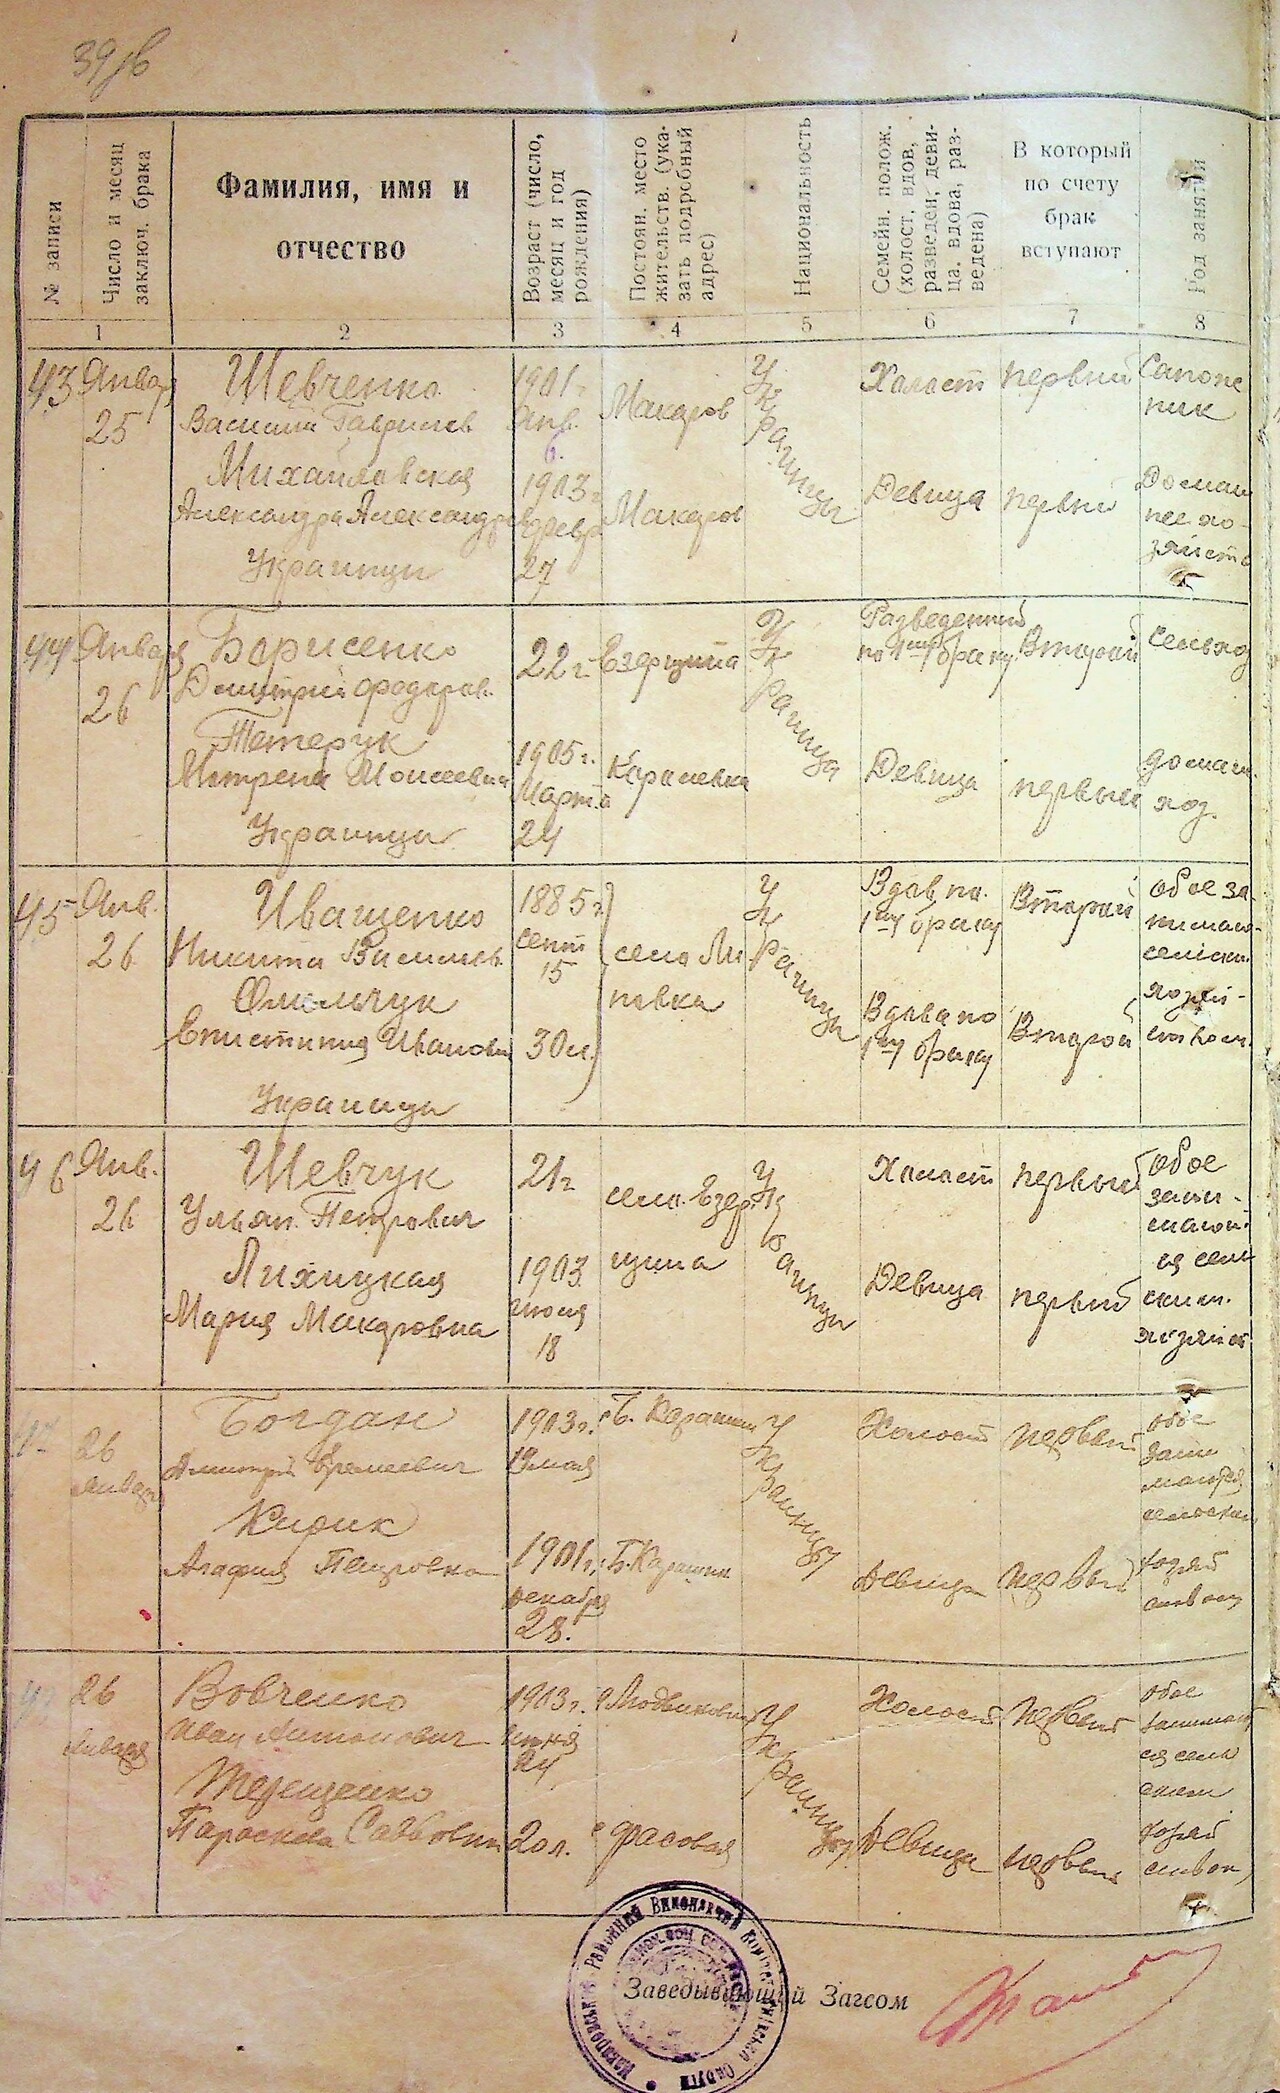 39
№ записи
Число и месяц
заключ. брака
Фамилия, имя и
отчество
Возраст (число,
месяц и год
рождения)
Постоян. место
жительств. (ука-
зать подробный
адрес)
Национальность
Семейн. полож.
(холост, вдов,
разведен, деви-
ца, вдова, раз-
ведена)
В который
по счету
брак
вступают
Род занятий
1 2 3 4 5 6 7 8
43
Январ
25
Шевченко
Василий Гаврилов
Михайловская
Александра
Украинцы
1901 г.
Янв.
6.
1903 г.
27
Макаров
Макаров
Украинцы
Холост
Девица
первый
первый
Сапож
ник
Домаш
нее хо-
зяйств
44
Январ
26
Борисенко
Дмитрий Федоров.
Тетерук
Мотрена Моисеевна
Украинцы
22 г.
1905 г.
Марта
24
Королевка
Разведенный
по 1му браку
Девица
Второй
первый
сельхоз
домаш.
хоз.
45
Янв.
26
Иващенко
Никита Васильев.
Омельчук
Ивановн
Украинцы
1885 г.
сент
15
30 л.
село Ли
повка
Вдов по
1му браку
Вдова по
1му браку
Второй
Второй
обое за-
46
Янв.
26
Шевчук
Ульян Петрович
Лихицкая
Мария Макаровна
21 г
1903
июля
18
село
щина
Холост
Девица
первый
первый
обое
зани-
47
26
января
Богдан
Дмитрий Еремеевич
Кирик
Агафия Петровна
1903 г.
19 мая
1901 г.
декабря
28.
Б. Карашин
Б. Карашин
Украинцы
Холост
Девица
первый
первый
обое
зани
маются
сельским
хозяй
ством
26
января
Вовченко
Иван Антонович
Терещенко
Параскева Саввовна
1903 г.
июня
24
20 л.
с Фасовая
Украинцы
Холост
Девица
первый
первый
обое
занимают
ся сель
ским
хозяй
ством
Заведывающий Загсом
Макаровский Районний Виконавчий Комітет Київської Округи